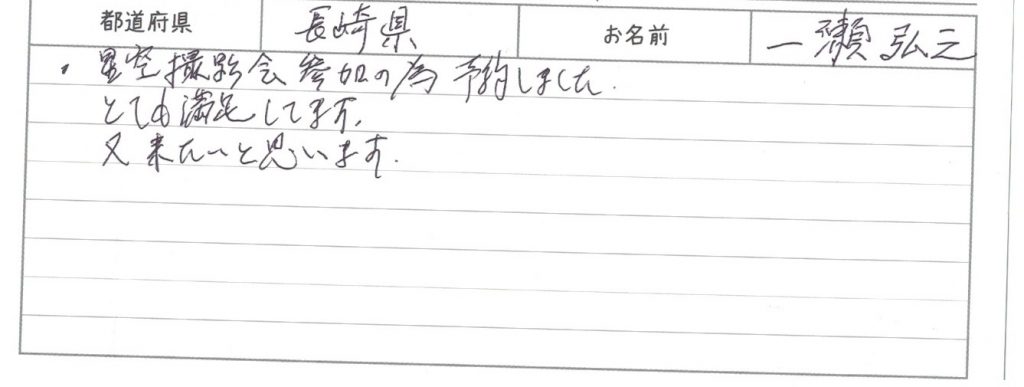 都道府県 長崎県 お名前 一瀬弘之
・星空撮影会参加の為予約しました.
とても満足してます.
又来たいと思います.